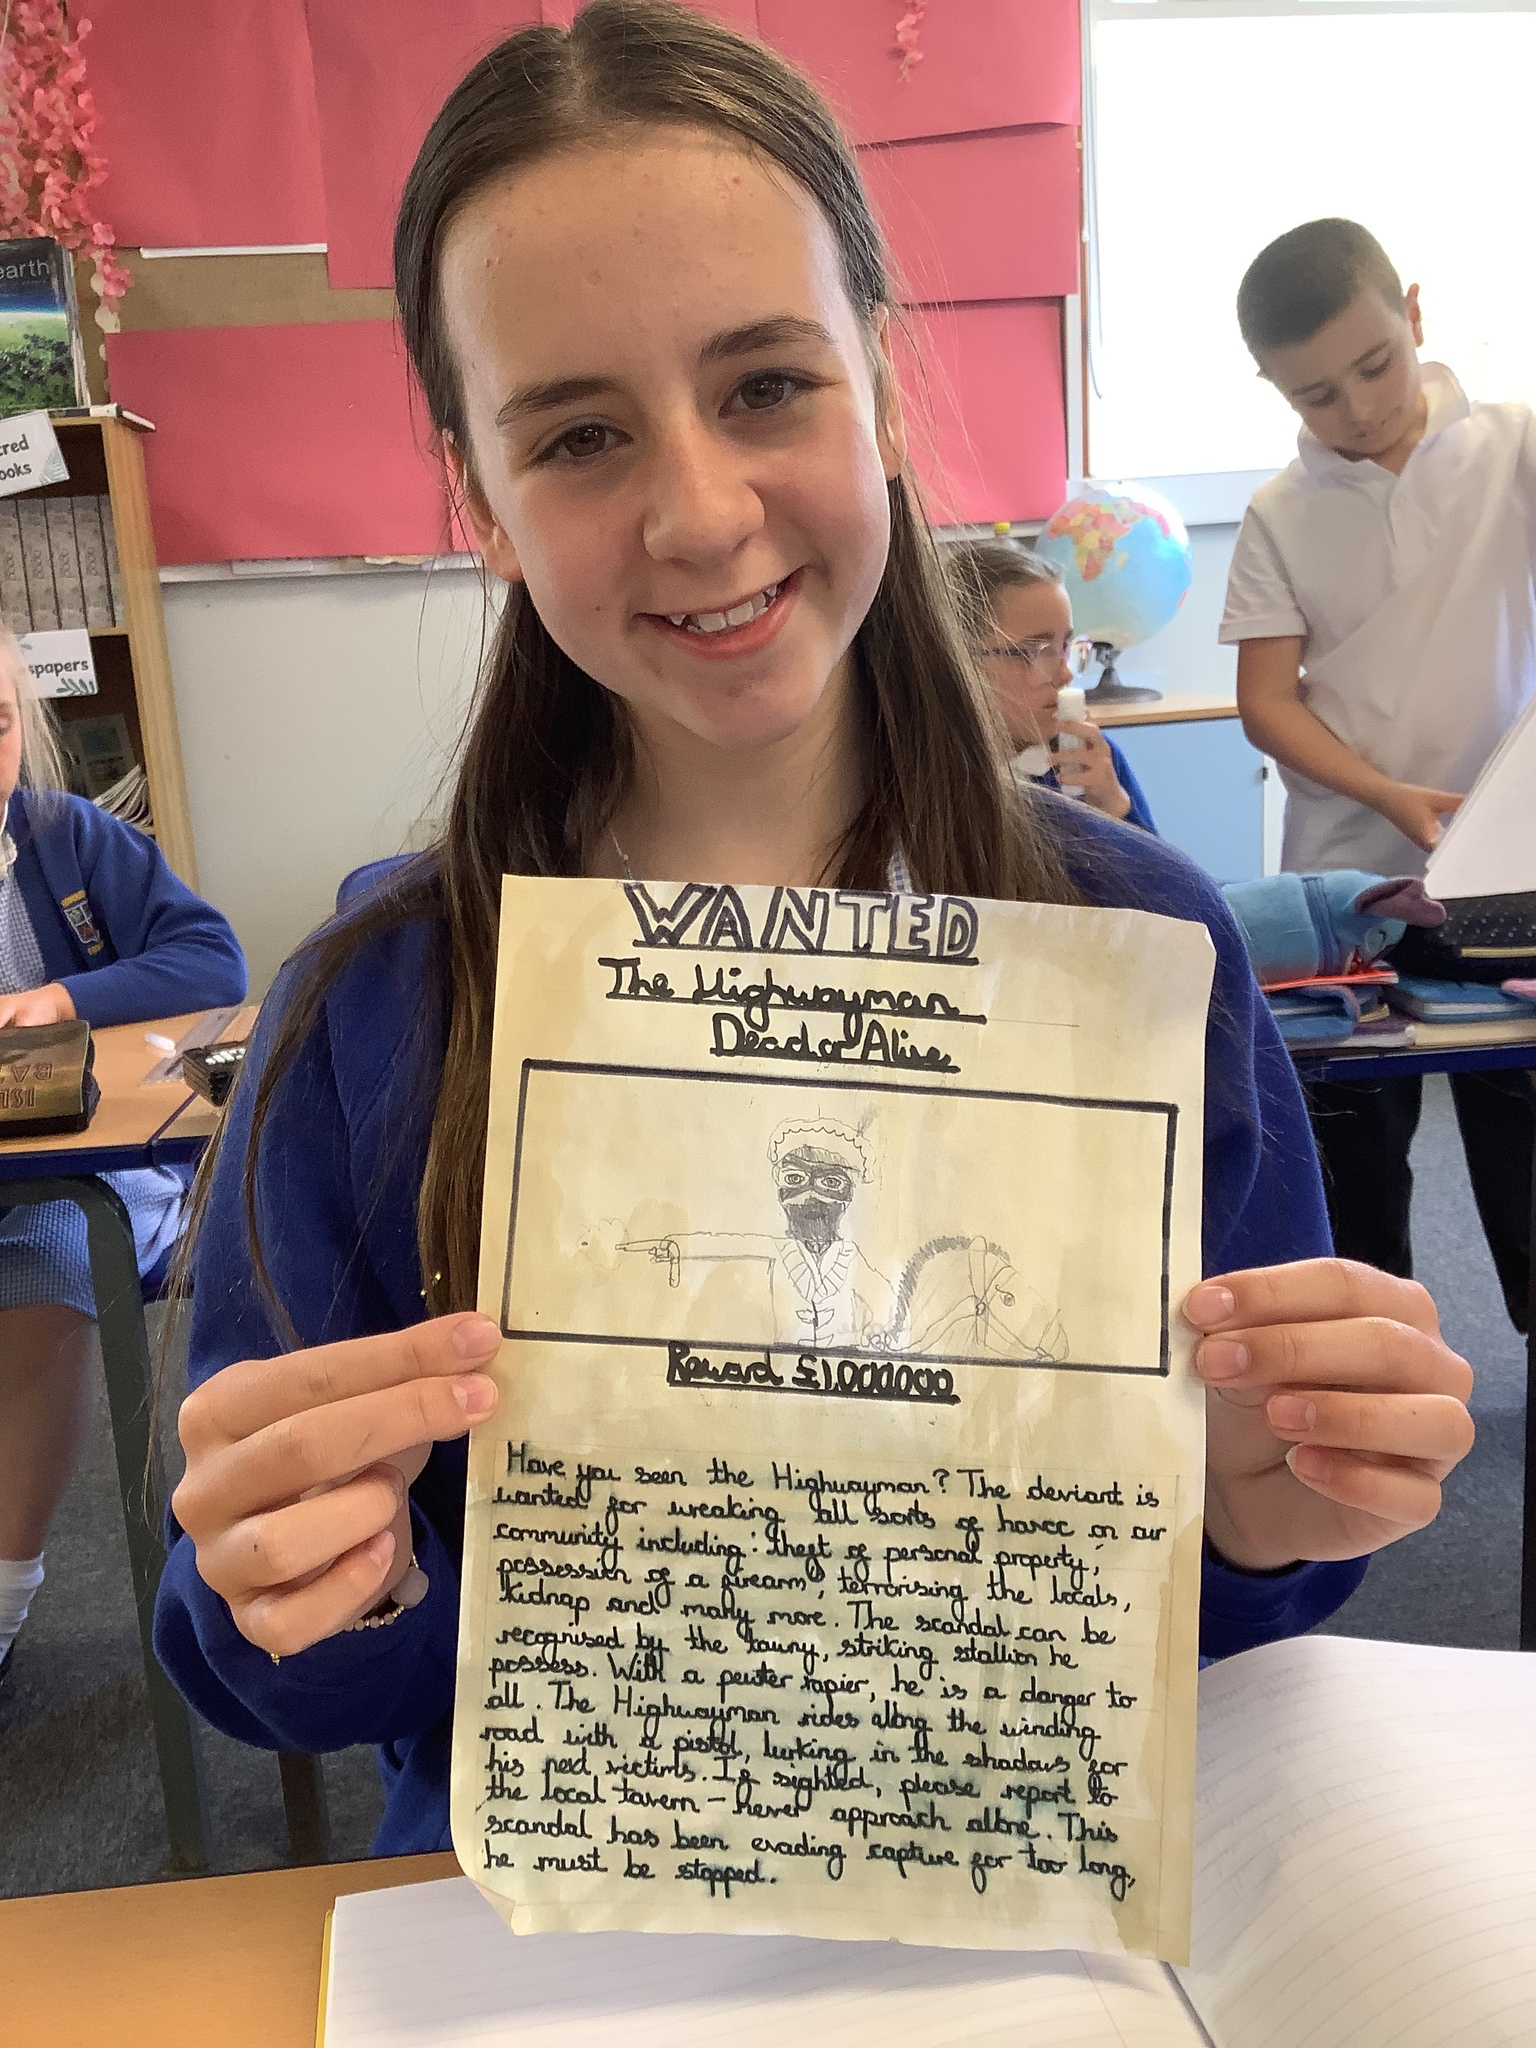 earth
ooks
spapers
WANTED
The Highwayman
Dead or Alive
Reward £1,000000
Have you seen the Highwayman? The deviant is
wanted for wreaking all sorts of havoc on our
community including: theft of personal property,
possession of a firearm, terrorising the locals,
kidnap and many more. The scandal can be
recognised by the tawny, striking stallion he
possess. With a pewter rapier, he is a danger to
all. The Highwayman rides along the winding
road with a pistol, lurking in the shadows for
his next victims. If sighted, please report to
the local tavern - never approach alone. This
scandal has been evading capture for too long,
he must be stopped.